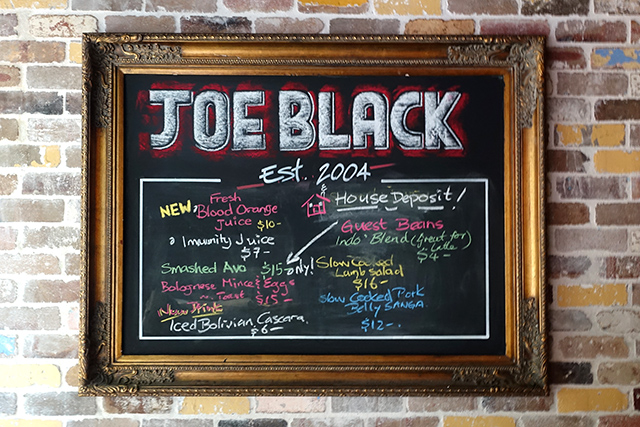 JOE BLACK
EST. 2004
NEW, Fresh
Blood Orange
Juice $10-
Immunity Juice
$7-
Smashed Avo $15- only!
Bolognese Mince & Eggs
Toast $15-
New Drink
Iced Bolivian Cascara.
$6-
House Deposit!
Guest Beans
Indo Blend (Great for
Latte)
$4-
Slow Cooked
Lamb Salad
$16-
Slow Cooked Pork
Belly SANGA.
$12-.